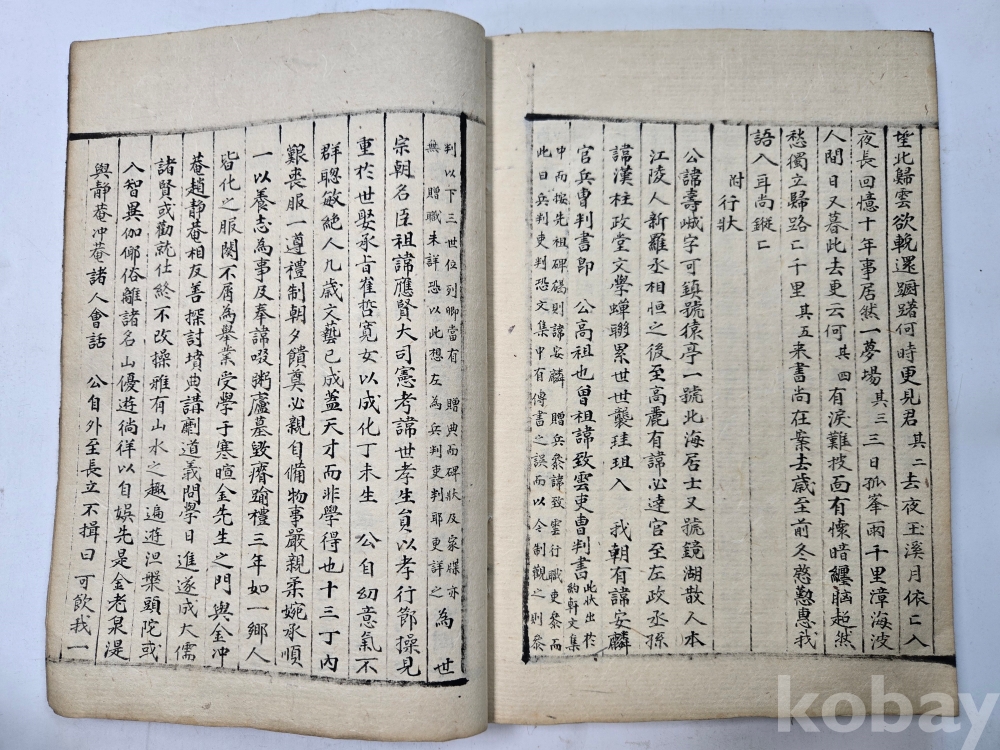 望北歸雲欲輓還躕躇何時更見君 其二 去夜玉溪月依匕入
夜長回憶十年事居然一夢場 其三 三日孤峯雨千里漳海波
人間日又暮此去更云何 其四 有淚難披面有懷暗纏腦超然
愁獨立歸路匕千里 其五 来書尚在案去歲至前冬慇懃惠我
語入耳尚鏦匕
附 行狀
公諱壽峸字可鎮號猿亭一號北海居士又號鏡湖散人本
江陵人新羅丞相恒之後至高麗有諱必達官至左政丞孫
諱漢柱政堂文學蟬聯累世世襲珪珇入 我朝有諱安麟
官兵曺判書卽 公高祖也曾祖諱致雲吏曺判書 此狀出於韵軒文集
中而按先祖碑碣則諱安麟 贈兵叅諱致雲行職吏叅而
此曰兵判吏判恐文集中有傳書之誤而以今制觀之則叅
判以下三世位列卿當有 贈典而碑狀及家牒亦
無 贈職未詳恐以此想左為兵判吏判耶更詳之 為 世
宗朝名臣祖諱應賢大司憲考諱世孝生員以孝行節操見
重於世娶承旨崔哲寬女以成化丁未生 公自幼意氣不
群聰敏絶人九歲文藝已成盖天才而非學得也十三丁內
艱喪服一遵禮制朝夕饋奠必親自備物事嚴親柔婉承順
一以養志為事及奉諱啜粥廬墓毀瘠踰禮三年如一鄉人
皆化之服闋不屑為擧業受學于寒暄金先生之門與金冲
菴趙靜菴相友善探討墳典講劘道義問學日進遂成大儒
諸賢或勸就仕終不改操雅有山水之趣遍遊涅槃頭陀或
入智異伽倻俗離諸名山優遊徜徉以自娛先是金老泉湜
與靜菴冲菴諸人會話 公自外至長立不揖曰可飲我一
kobay